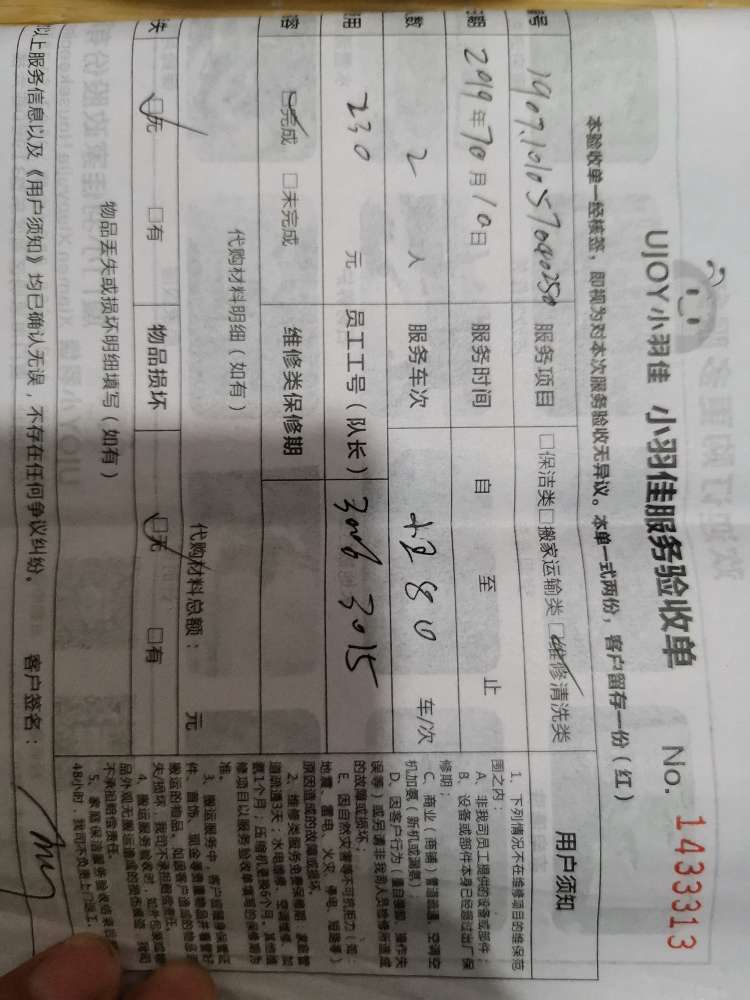 UJOY小羽佳 小羽佳服务验收单 No. 1433313
本验收单一经核签，即视为对本次服务验收无异议。本单一式两份，客户留存一份（红）
编号 服务项目 □保洁类□搬家运输类□维修清洗类
日期 2019年10月10日 服务时间 自 至 止
数 2 人 服务车次 车/次
用 230 元 员工工号（队长） 3006 3015
容 □完成 □未完成 维修类保修期
代购材料明细（如有） 代购材料总额： 元
失 □无 □有 物品损坏 □无 □有
物品丢失或损坏明细填写（如有）
以上服务信息以及《用户须知》均已确认无误，不存在任何争议纠纷。 客户签名：
用户须知
1、下列情况不在维修项目的维保范
围之内：
A、非我司员工提供的设备或部件；
B、设备或部件本身已经超过出厂保
修期；
C、商业（商铺）管道疏通、空调空
机加氨（新机或漏氨）
D、因客户行为（
误等）或另请非我司人员检修所造成
的故障或损坏；
E、因自然灾害等不可抗拒力（如：
地震、雷电、火灾、停电、短路等）
原因造成的故障或损坏
2、维修类服务免费保修期：家庭管
道疏通3天；水电维修、空调维修、加
氨1个月；压缩机更换6个月。其他维
修项目以服务验收单填写的保修期为
准。
3、搬运服务中，客户应随身保管证
件、首饰、现金等贵重物品并看管好
搬运的物品，如因客户造成的物品丢
失/损坏，我司不承担赔偿责任。
4、搬运服务验收时，如外包装或物
品外观无搬运造成的损伤痕迹，我司
不承担赔偿责任。
5、家庭保洁服务验收结束后
48小时，我司不负责上门返工。